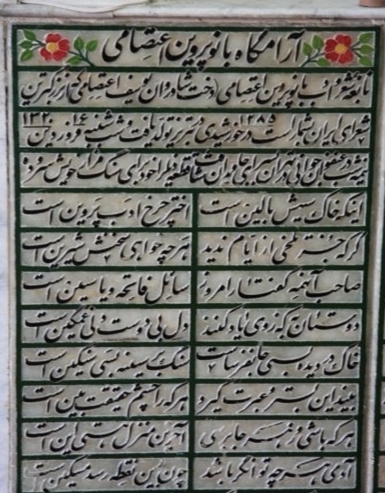 آرامگاه بانو پروین اعتصامی
نابغه شعر و ادب بانو پروین اعتصامی دخت شادروان یوسف اعتصامی که از بزرگترین
شعرای ایران بشمار است در ۱۲۸۵ خورشیدی در تبریز تولد یافت و شب شنبه ۱۶ فروردین ۱۳۲۰
در تهران بسرای جاویدان شتافت قطعه زیر را خود برای سنگ مزار خویش سروده
اینکه خاک سیهش بالین است اختر چرخ ادب پروین است
گرچه جز تلخی از ایام ندید هر چه خواهی سخنش شیرین است
صاحب آنهمه گفتار امروز سائل فاتحه و یاسین است
دوستان به که ز وی یاد کنند دل بی دوست دلی غمگین است
خاک در دیده بسی جان فرساست سنگ بر سینه بسی سنگین است
بیند این بستر و عبرت گیرد هر که را چشم حقیقت بین است
هر که باشی و ز هر جا برسی آخرین منزل هستی این است
آدمی هر چه توانگر باشد چون بدین نقطه رسد مسکین است